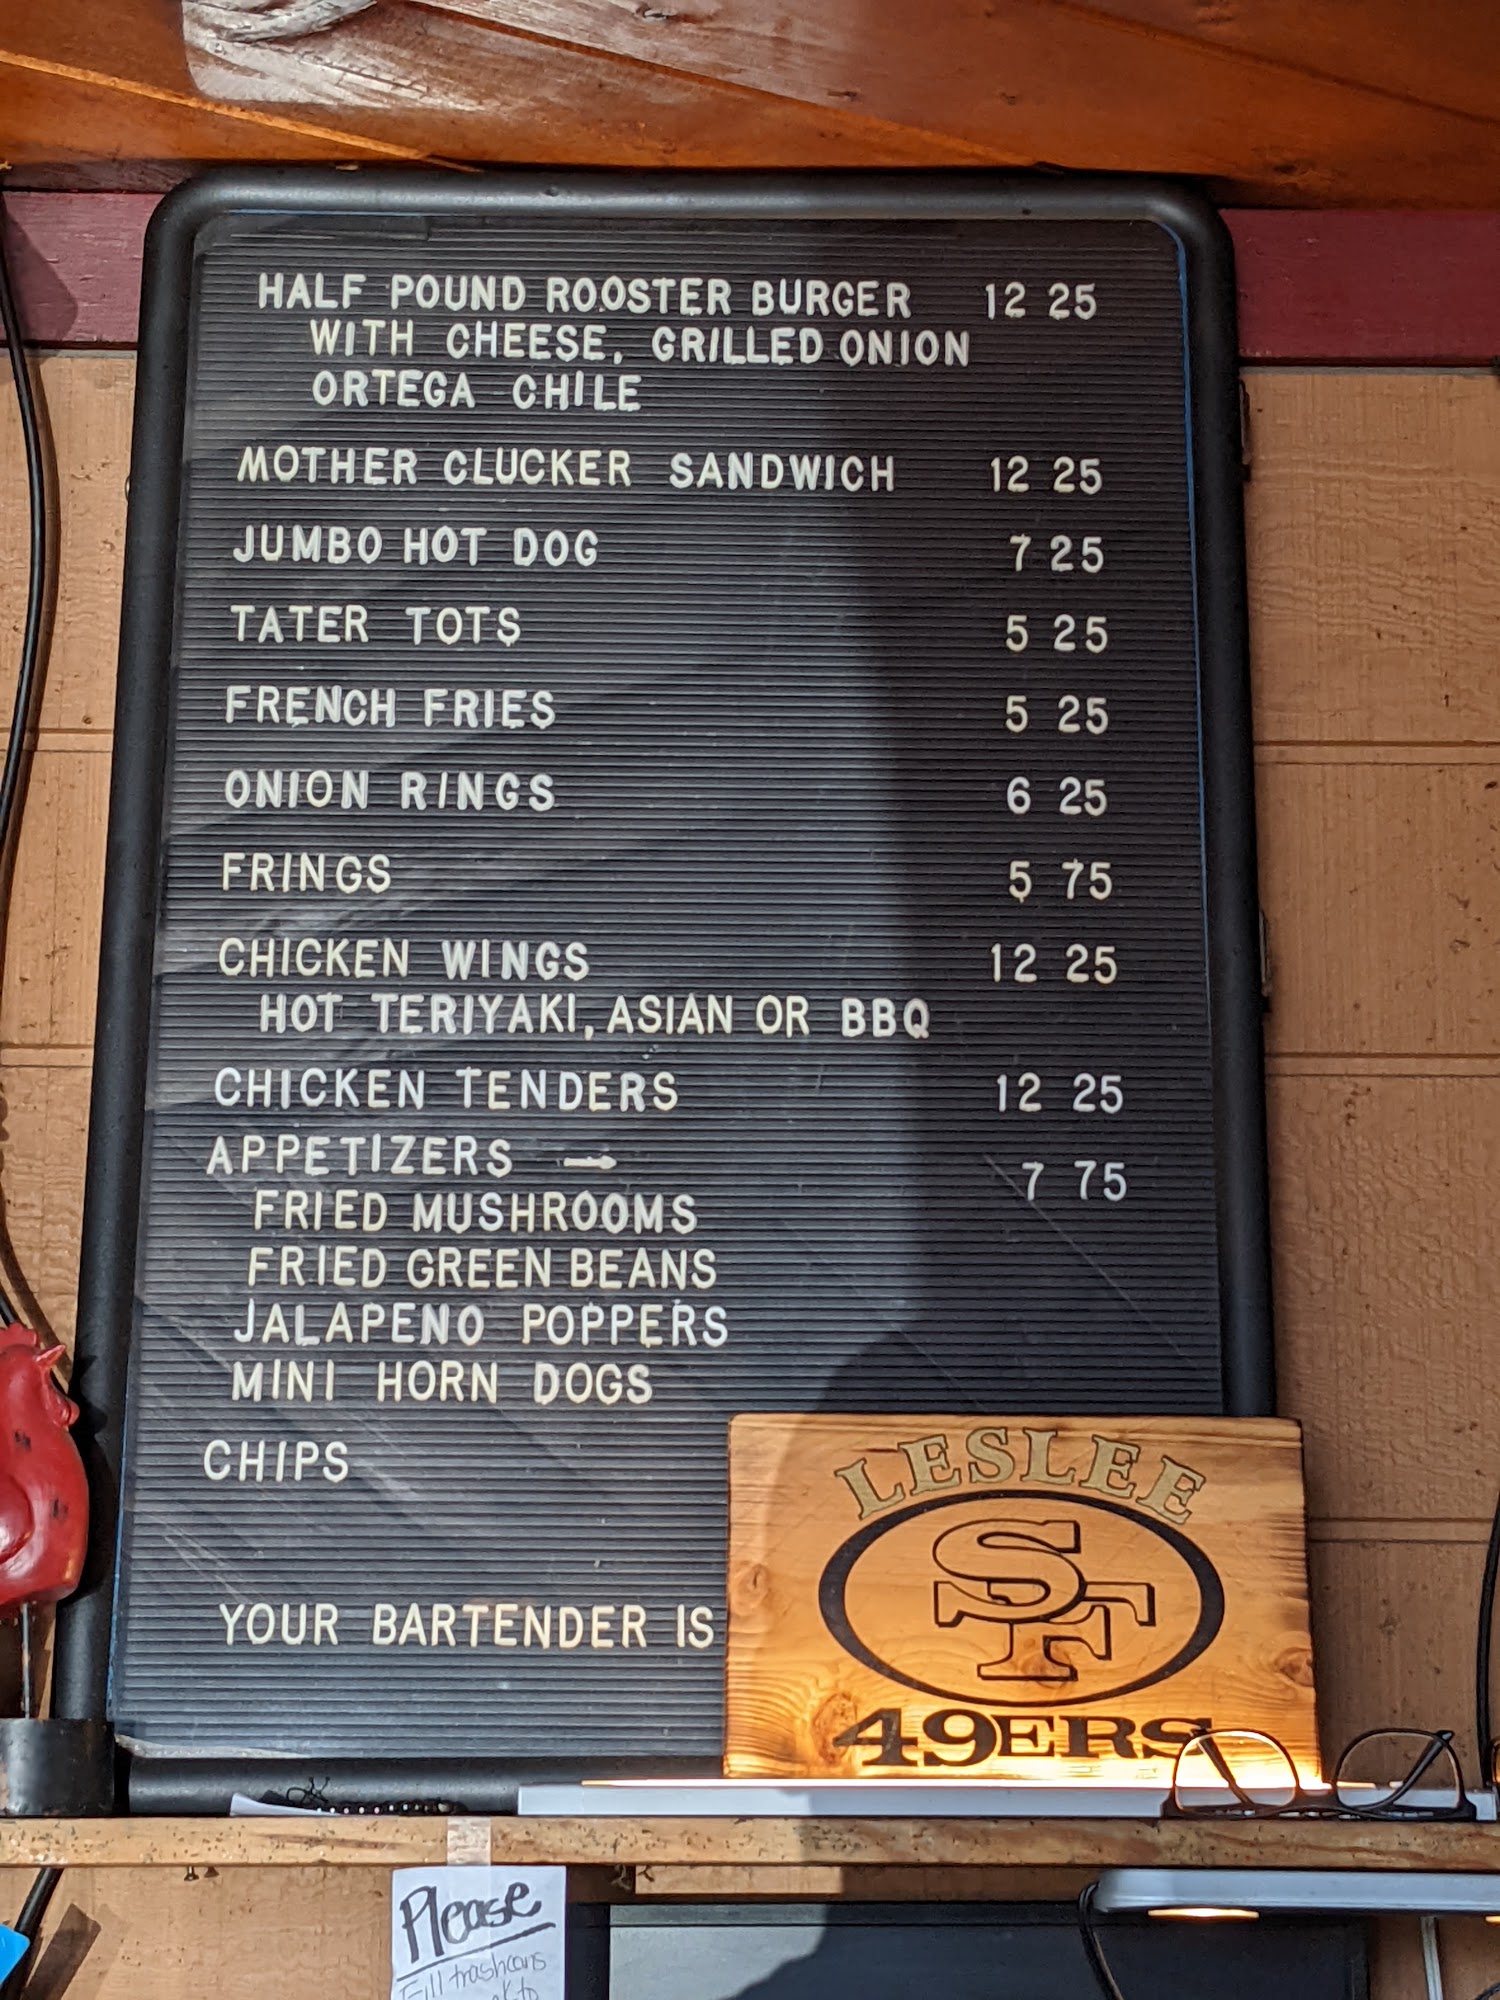 HALF POUND ROOSTER BURGER 12 25
WITH CHEESE, GRILLED ONION
ORTEGA CHILE
MOTHER CLUCKER SANDWICH 12 25
JUMBO HOT DOG 7 25
TATER TOTS 5 25
FRENCH FRIES 5 25
ONION RINGS 6 25
FRINGS 5 75
CHICKEN WINGS 12 25
HOT TERIYAKI, ASIAN OR BBQ
CHICKEN TENDERS 12 25
APPETIZERS → 7 75
FRIED MUSHROOMS
FRIED GREEN BEANS
JALAPENO POPPERS
MINI HORN DOGS
CHIPS
YOUR BARTENDER IS
LESLEE
SF
49ERS
Please
Fill trashcans